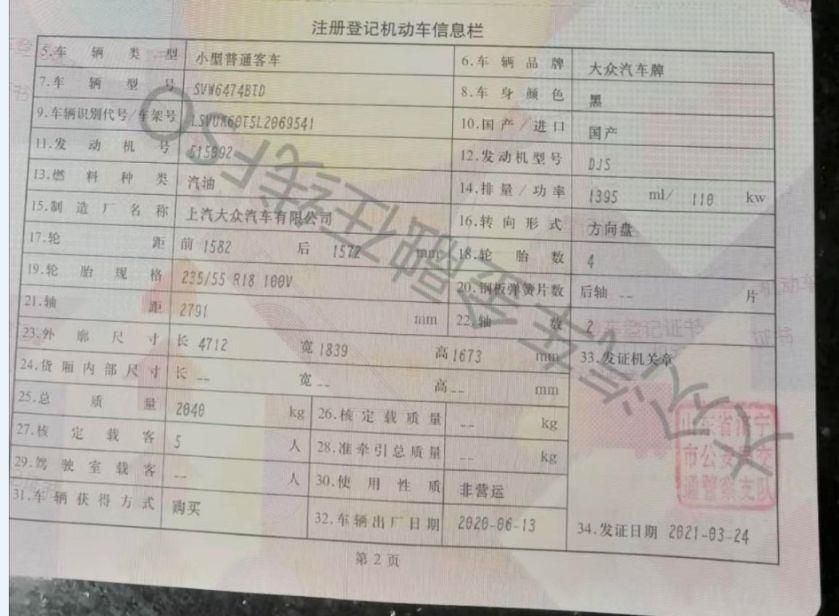 注册登记机动车信息栏
5.车辆类型 小型普通客车 6.车辆品牌 大众汽车牌
7.车辆型号 SVW6474BTD 8.车身颜色 黑
9.车辆识别代号/车架号 LSVUK60T5L2069541 10.国产/进口 国产
11.发动机号 515992 12.发动机型号 DJS
13.燃料种类 汽油 14.排量/功率 1395 ml/ 110 kw
15.制造厂名称 上汽大众汽车有限公司 16.转向形式 方向盘
17.轮距 前 1582 后 1572 mm 18.轮胎数 4
19.轮胎规格 235/55 R18 100V 20.钢板弹簧片数 后轴 -- 片
21.轴距 2791 mm 22.轴数 2
23.外廓尺寸 长 4712 宽 1839 高 1673 mm 33.发证机关章
24.货厢内部尺寸 长 -- 宽 -- 高 -- mm
25.总质量 2040 kg 26.核定载质量 -- kg
27.核定载客 5 人 28.准牵引总质量 -- kg
29.驾驶室载客 -- 人 30.使用性质 非营运
31.车辆获得方式 购买 32.车辆出厂日期 2020-06-13 34.发证日期 2021-03-24
山东省济宁
市公安局交
通警察支队
第2页
大众汽车金融在线FSO